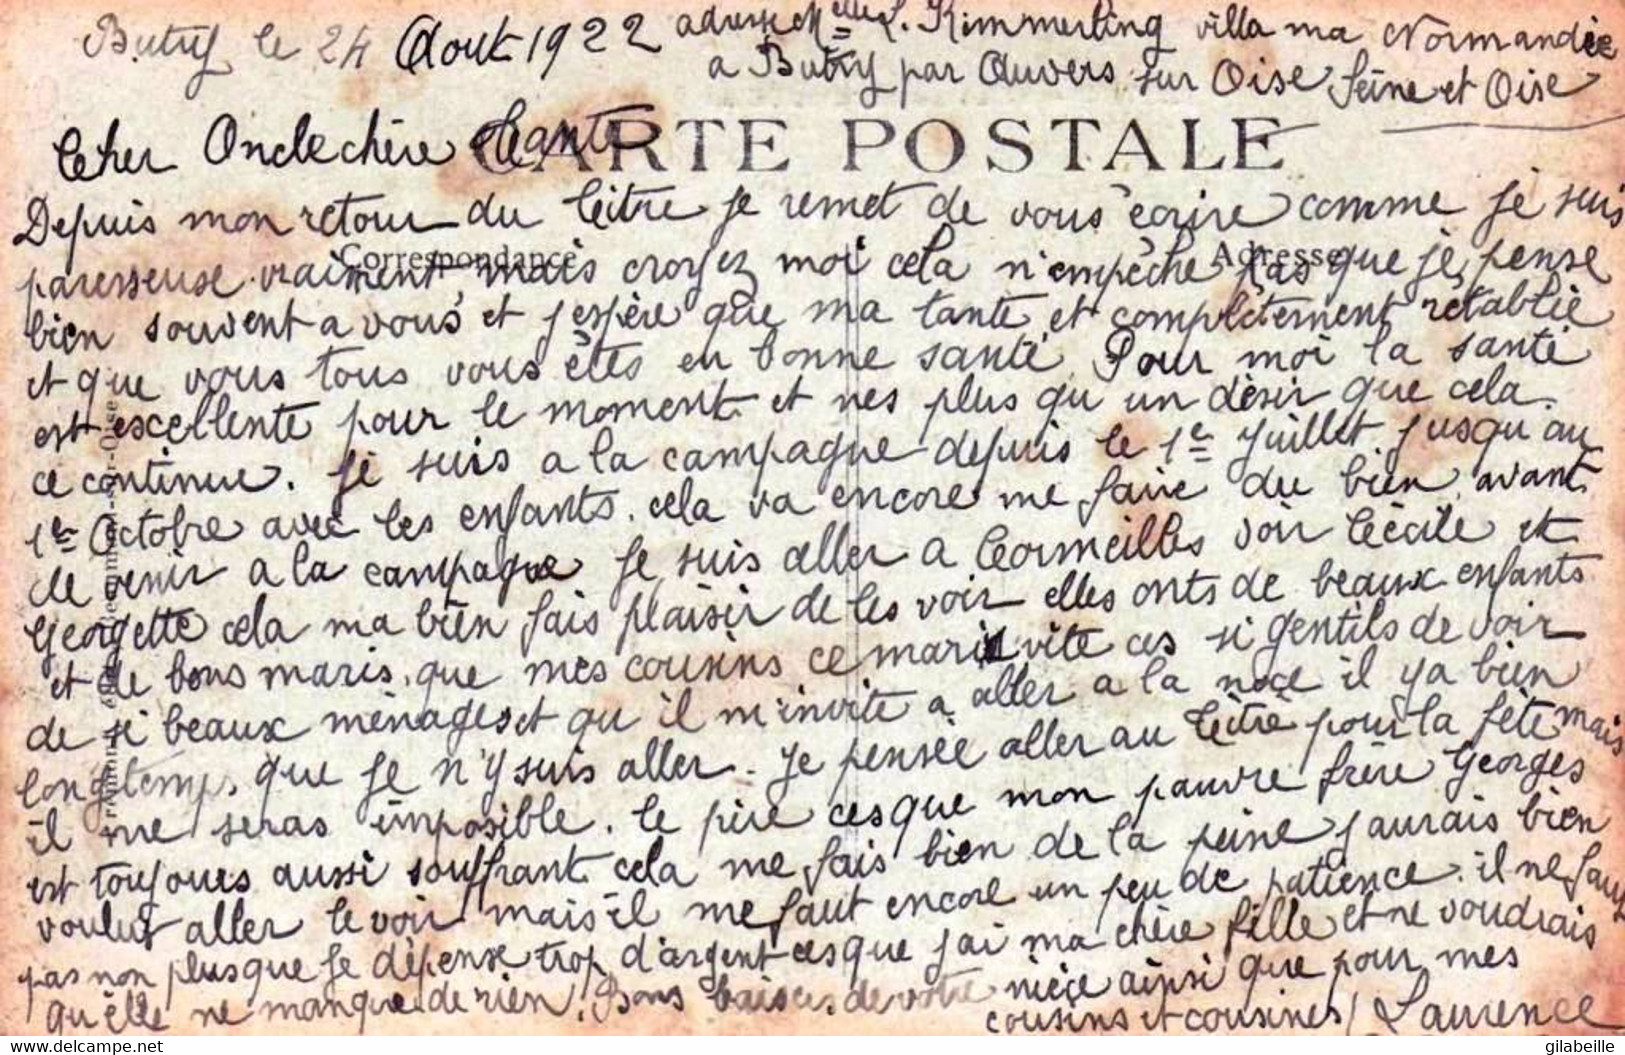 Butry le 24 Aout 1922 adresse Melle L. Kimmerling villa ma Normandie
a Butry par Auvers sur Oise Seine et Oise
CARTE POSTALE
Cher Oncle chère Tante
Depuis mon retour du Titre je remet de vous écrire comme je suis
Correspondance Adresse
paresseuse vraiment mais croyez moi cela n'empêche pas que je pense
bien souvent a vous et j'espère que ma tante et complètement rétablie
et que vous tous vous êtes en bonne santé. Pour moi la santé
est excellente pour le moment et nes plus qu un désir que cela
ce continue. Je suis a la campagne depuis le 1er Juillet jusqu au
1er Octobre avec les enfants. cela va encore me faire du bien avant
de venir a la campagne je suis aller a Cormeilles voir Cécile et
Georgette cela ma bien fais plaisir de les voir elles onts de beaux enfants
et de bons maris. que mes cousins ce mari vite ces si gentils de voir
de si beaux ménages et qu il m'invite a aller a la noce il y a bien
longtemps que je n'y suis aller. Je pensée aller au Titre pour la fête mais
il me seras imposible. le pire ces que mon pauvre frère Georges
est toujours aussi souffrant cela me fais bien de la peine j aurais bien
voulut aller le voir mais il me faut encore un peu de patience. il ne faut
pas non plus que je dépense trop d'argent ces que jai ma chère fille et ne voudrais
qu'elle ne manque de rien. Bons baisers de votre nièce ainsi que pour mes
cousins et cousines / Laurence
delcampe.net
gilabeille